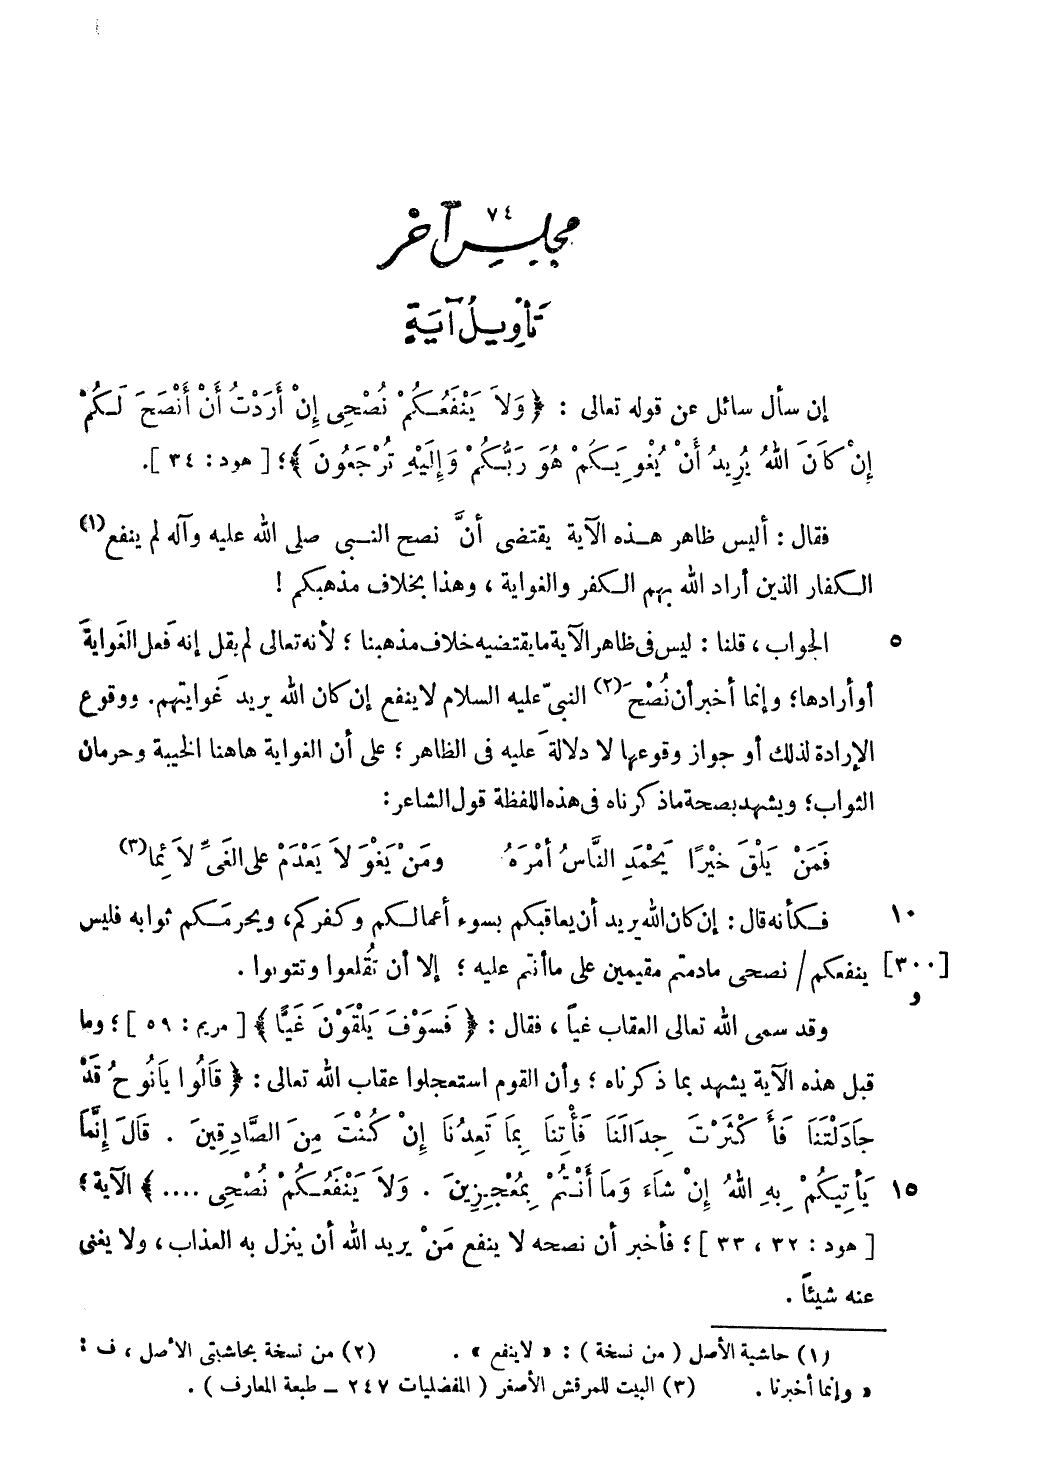 ٧٤
مجلس آخر
تأويل آية
إن سأل سائل عن قوله تعالى : ﴿ وَلاَ يَنْفَعُكُمْ نُصْحِى إِنْ أَرَدْتُ أَنْ أَنْصَحَ لَكُمْ
إِنْ كَانَ اللهُ يُرِيدُ أَنْ يُغْوِيَكُمْ هُوَ رَبُّكُمْ وَإِلَيْهِ تُرْجَعُونَ ﴾؛ [ هود : ٣٤ ].
فقال : أليس ظاهر هذه الآية يقتضى أنَّ نصح النبى صلى الله عليه وآله لم ينفع(١)
الكفار الذين أراد الله بهم الكفر والغواية ، وهذا بخلاف مذهبكم !
٥ الجواب ، قلنا : ليس فى ظاهر الآية ما يقتضيه خلاف مذهبنا ؛ لأنه تعالى لم يقل إنه فَعل الغَوايةَ
أو أرادها؛ وإنما أخبر أن نُصْحَ(٢) النبىّ عليه السلام لا ينفع إن كان الله يريد غَوايتهم. ووقوع
الإرادة لذلك أو جواز وقوعها لا دلالة عليه فى الظاهر ؛ على أن الغواية هاهنا الخيبة وحرمان
الثواب؛ ويشهد بصحة ما ذكرناه فى هذه اللفظة قول الشاعر :
فَمَنْ يَلْقَ خيْرًا يَحْمَدِ النَّاسُ أمْرَهُ ومَنْ يَغْوَ لاَ يَعْدَمْ على الغَىِّ لاَئِما(٣)
١٠ فكأنه قال : إن كان الله يريد أن يعاقبكم بسوء أعمالكم وكفركم، ويحرمَكم ثوابه فليس
[٣٠٠ و] ينفعكم / نصحى مادمتم مقيمين على ما أنتم عليه ؛ إلا أن تُقلعوا وتتوبوا .
وقد سمى الله تعالى العقاب غياً ، فقال : ﴿ فَسَوْفَ يَلْقَوْنَ غَيًّا ﴾ [ مريم : ٥٩ ] ؛ وما
قبل هذه الآية يشهد بما ذكرناه ؛ وأن القوم استعجلوا عقاب الله تعالى : ﴿ قَالُوا يَانُوحُ قَدْ
جَادَلْتَنَا فَأَكْثَرْتَ جِدَالَنَا فَأْتِنَا بِمَا تَعِدُنَا إِنْ كُنْتَ مِنَ الصَّادِقِينَ . قَالَ إِنَّمَا
١٥ يَأْتِيكُمْ بِهِ اللهُ إِنْ شَاءَ وَمَا أَنْتُمْ بِمُعْجِزِينَ . وَلاَ يَنْفَعُكُمْ نُصْحِى .... ﴾ الآية ؛
[ هود : ٣٢ ، ٣٣ ] ؛ فأخبر أن نصحه لا ينفع مَنْ يريد الله أن ينزل به العذاب ، ولا يغنى
عنه شيئاً .
(١) حاشية الأصل ( من نسخة ) : « لا ينفع » . (٢) من نسخة بحاشيتى الأصل ، ف :
« وإنما أخبرنا . (٣) البيت للمرقش الأصغر ( المفضليات ٢٤٧ – طبعة المعارف ) .